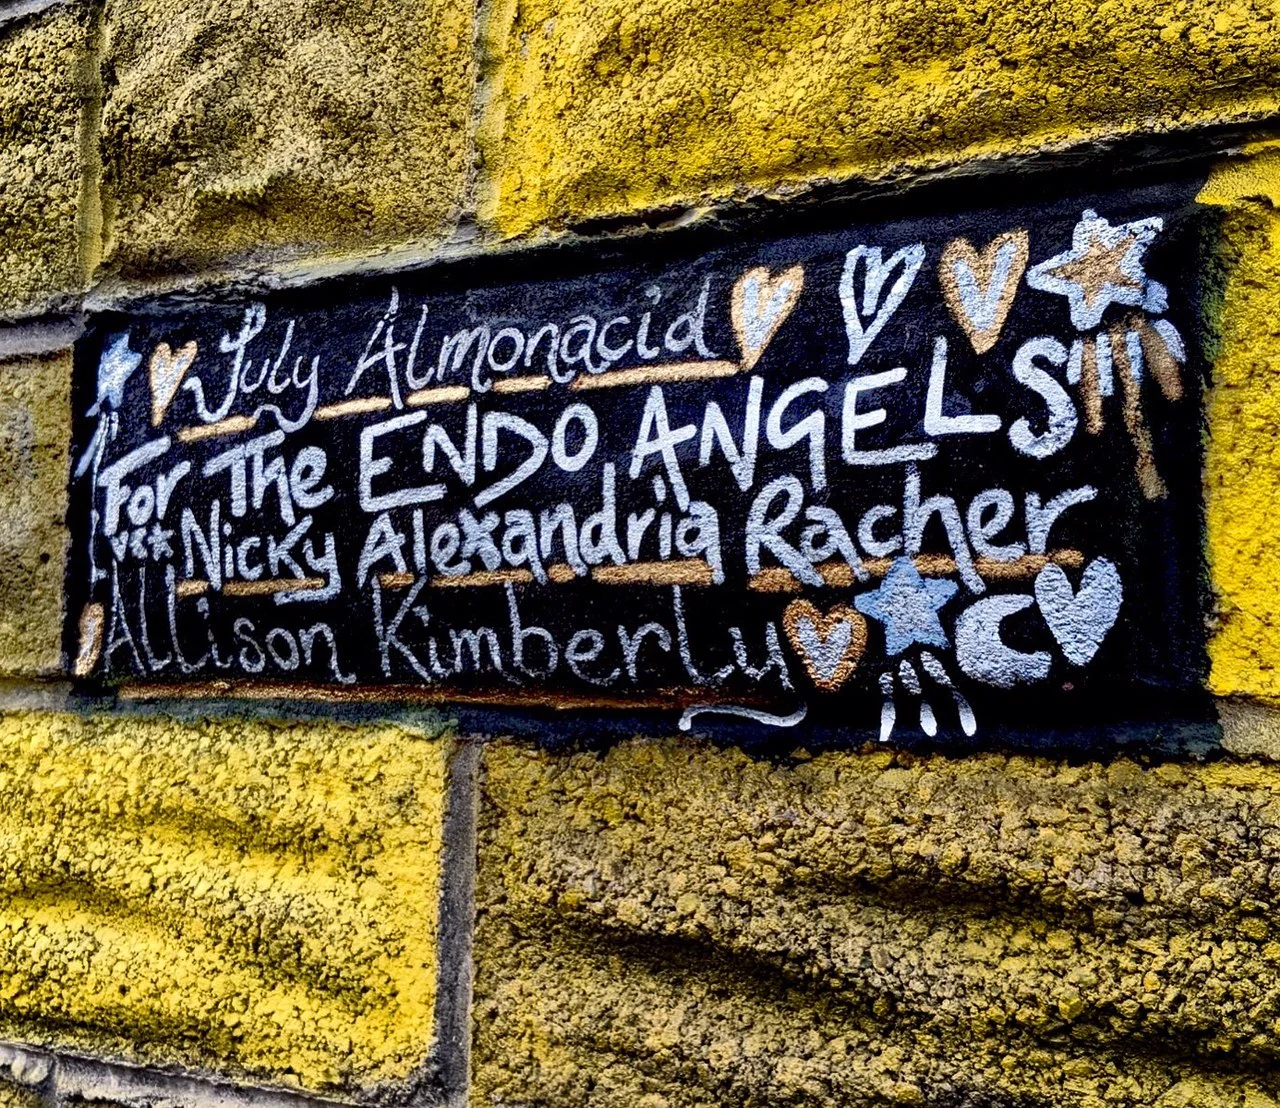 July Almonacid
For The ENDO ANGELS
Nicky Alexandria Racher
Allison Kimberly